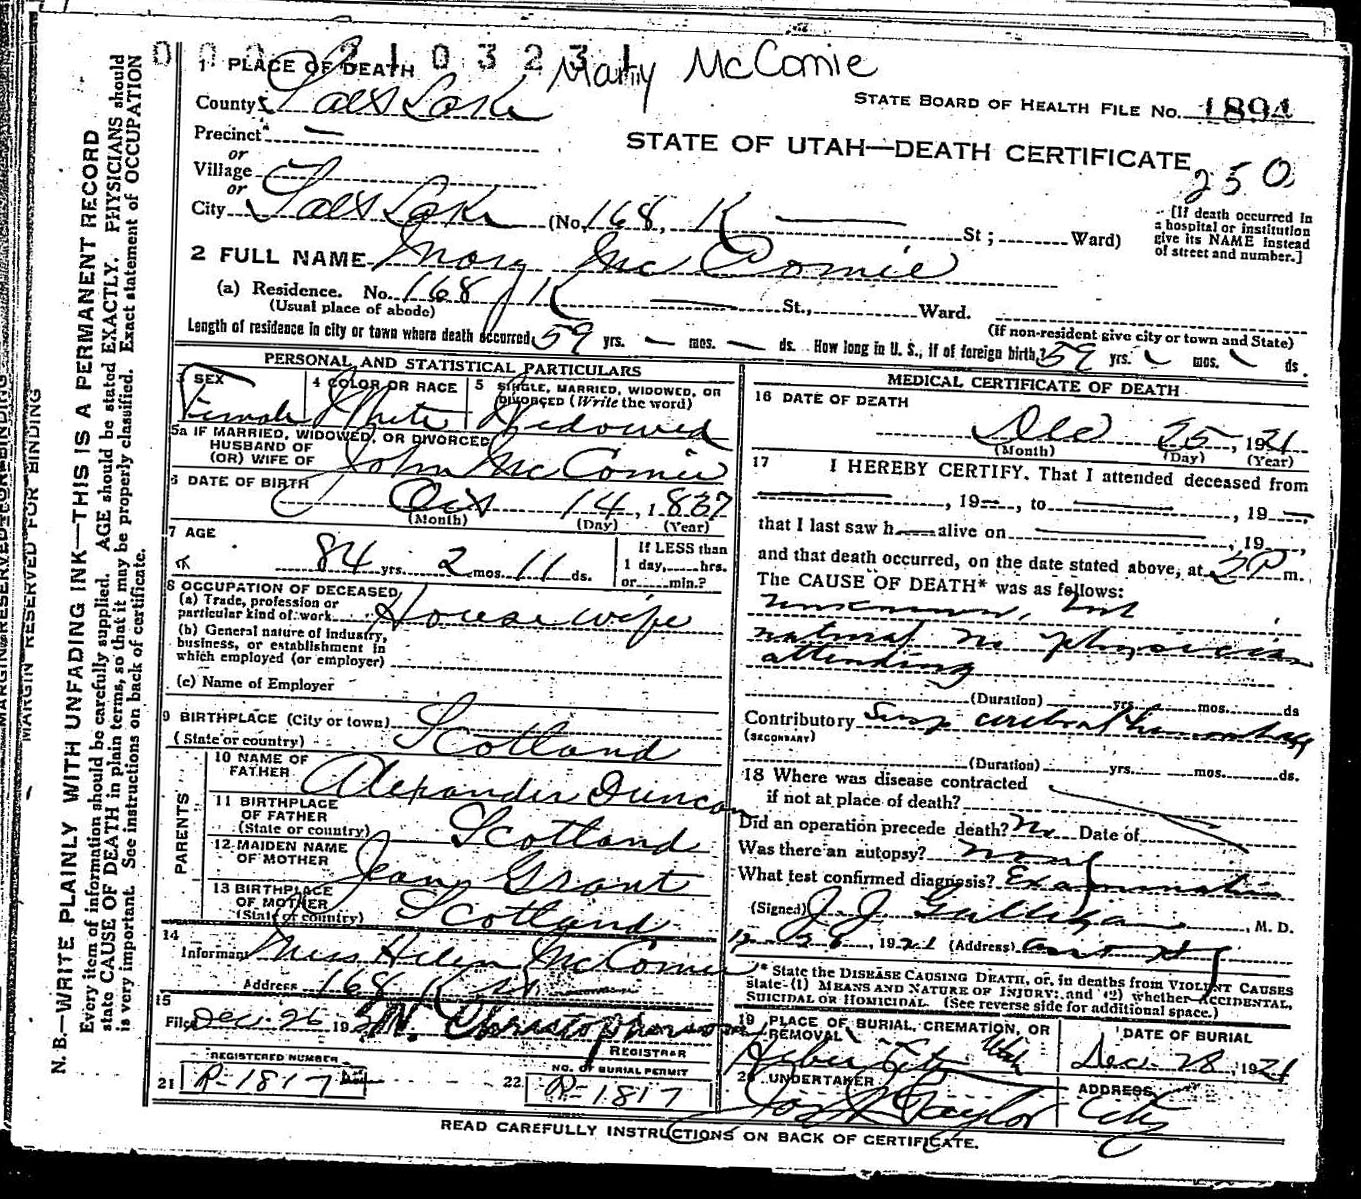 0 0 0 2 1 0 3 2 3 1
Mary McComie
1 PLACE OF DEATH
County Salt Lake
STATE BOARD OF HEALTH FILE No. 1894
Precinct —
or
STATE OF UTAH—DEATH CERTIFICATE
250
Village
or
City Salt Lake (No. 168, K — St; Ward)
[If death occurred in
a hospital or institution
give its NAME instead
of street and number.]
2 FULL NAME Mary McComie
(a) Residence. No. 168 K — St., Ward.
(Usual place of abode)
(If non-resident give city or town and State)
Length of residence in city or town where death occurred 59 yrs. — mos. — ds. How long in U. S., if of foreign birth? 59 yrs. — mos. — ds.
PERSONAL AND STATISTICAL PARTICULARS
3 SEX
Female
4 COLOR OR RACE
White
5 SINGLE, MARRIED, WIDOWED, OR
DIVORCED (Write the word)
Widowed
5a IF MARRIED, WIDOWED, OR DIVORCED
HUSBAND OF
(OR) WIFE OF John McComie
6 DATE OF BIRTH
Oct 14, 1837
(Month) (Day) (Year)
7 AGE
84 yrs. 2 mos. 11 ds.
If LESS than
1 day, hrs.
or min.?
8 OCCUPATION OF DECEASED
(a) Trade, profession or
particular kind of work House wife
(b) General nature of Industry,
business, or establishment in
which employed (or employer)
(c) Name of Employer
9 BIRTHPLACE (City or town)
(State or country) Scotland
PARENTS
10 NAME OF
FATHER Alexander Duncan
11 BIRTHPLACE
OF FATHER
(State or country) Scotland
12 MAIDEN NAME
OF MOTHER Jean Grant
13 BIRTHPLACE
OF MOTHER
(State or country) Scotland
14
Informant Miss Helen McComie
Address 168 K St
15
Filed Dec. 26 1921 Christopherson
REGISTRAR
REGISTERED NUMBER
21 R-1817
NO. OF BURIAL PERMIT
22 R-1817
MEDICAL CERTIFICATE OF DEATH
16 DATE OF DEATH
Dec 25, 1921
(Month) (Day) (Year)
17 I HEREBY CERTIFY, That I attended deceased from
—, 19—, to —, 19—
that I last saw h— alive on —, 19—,
and that death occurred, on the date stated above, at 2 P m.
The CAUSE OF DEATH* was as follows:
unknown, but
natural no physician
attending
(Duration) yrs. mos. ds
Contributory Susp cerebral hemorrhage
(SECONDARY)
(Duration) yrs. mos. ds.
18 Where was disease contracted
if not at place of death?
Did an operation precede death? No Date of
Was there an autopsy? none
What test confirmed diagnosis? Examination
(Signed) J J Galligan, M. D.
12-26, 1921 (Address)
* State the DISEASE CAUSING DEATH, or, in deaths from VIOLENT CAUSES
state (1) MEANS AND NATURE OF INJURY; and (2) whether ACCIDENTAL,
SUICIDAL OR HOMICIDAL. (See reverse side for additional space.)
19 PLACE OF BURIAL, CREMATION, OR
REMOVAL
Heber City Utah
DATE OF BURIAL
Dec. 28, 1921
20 UNDERTAKER
Jos Taylor
ADDRESS
City
READ CAREFULLY INSTRUCTIONS ON BACK OF CERTIFICATE.
MARGIN RESERVED FOR BINDING
MARGIN RESERVED FOR BINDING
N. B.—WRITE PLAINLY WITH UNFADING INK—THIS IS A PERMANENT RECORD
Every item of information should be carefully supplied. AGE should be stated EXACTLY. PHYSICIANS should
state CAUSE OF DEATH in plain terms, so that it may be properly classified. Exact statement of OCCUPATION
is very important. See instructions on back of certificate.